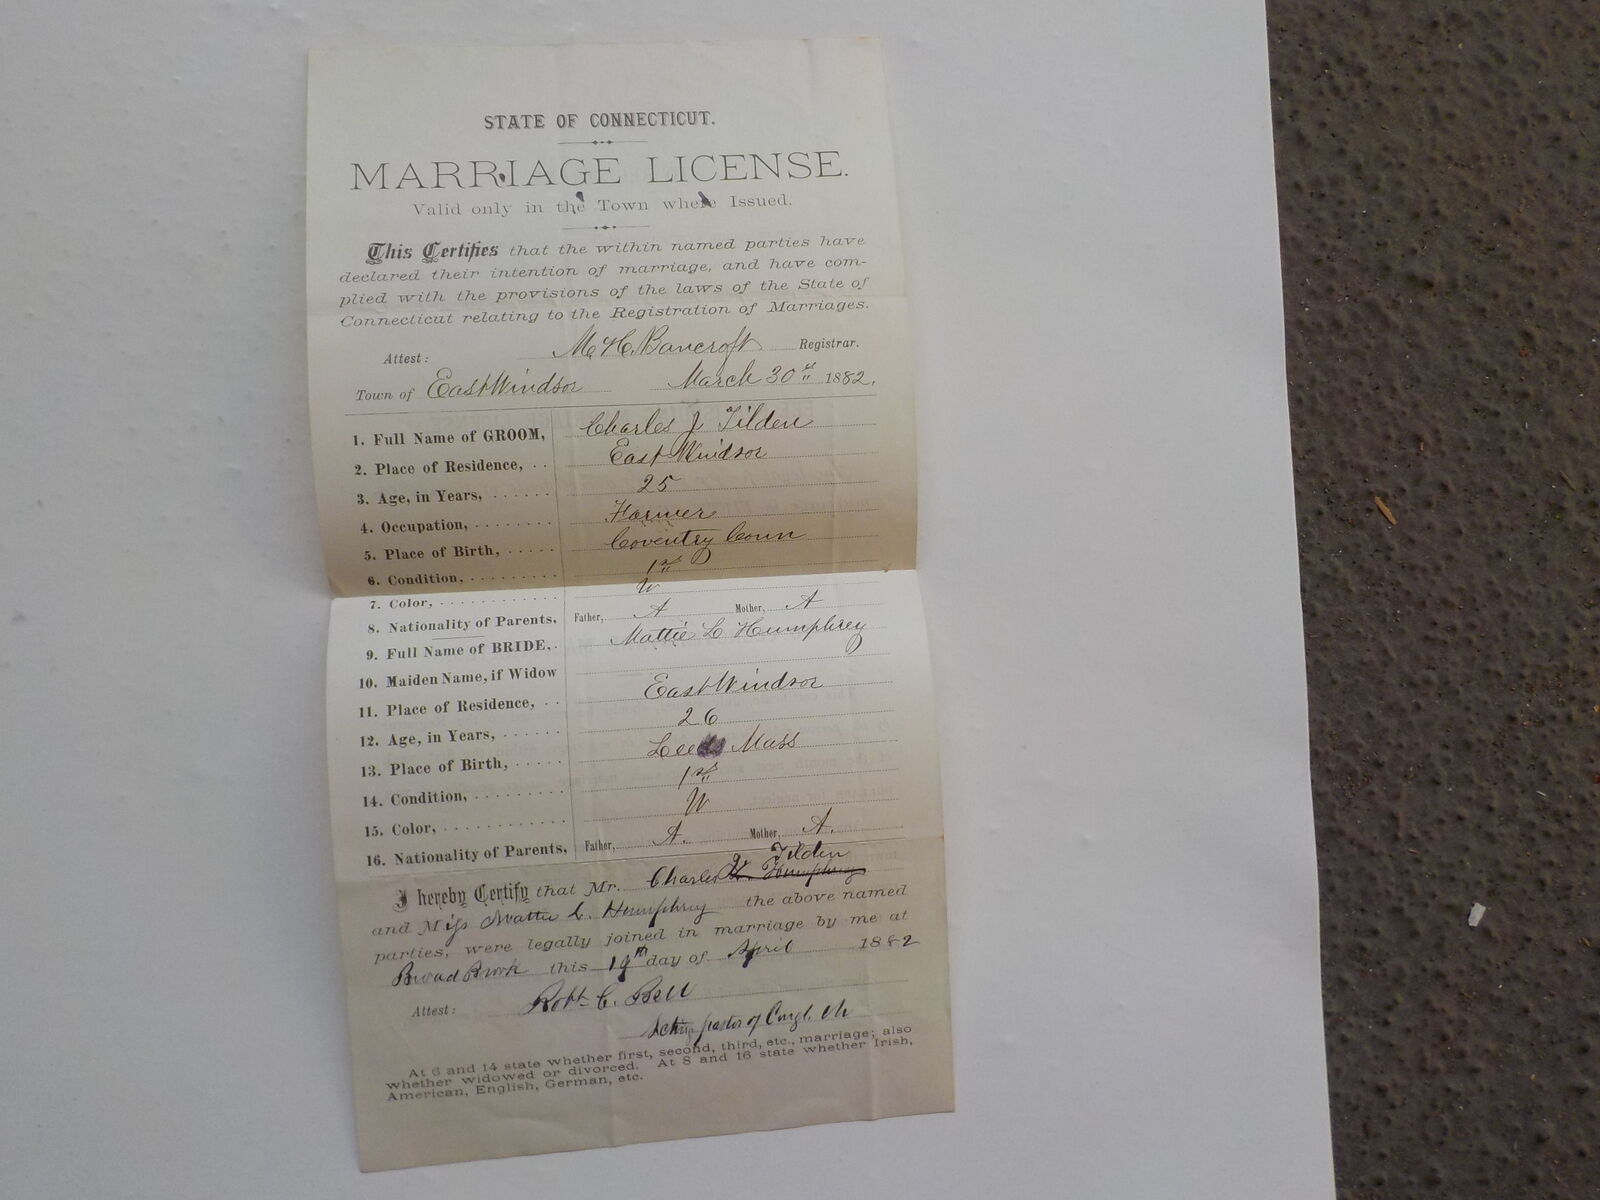 STATE OF CONNECTICUT.
MARRIAGE LICENSE.
Valid only in the Town where Issued.
This Certifies that the within named parties have
declared their intention of marriage, and have com-
plied with the provisions of the laws of the State of
Connecticut relating to the Registration of Marriages.
Attest: M. H. Bancroft Registrar.
Town of East Windsor March 30th 1882.
1. Full Name of GROOM, Charles J Tilden
2. Place of Residence, . . East Windsor
3. Age, in Years, . . . . . . 25
4. Occupation, . . . . . . . . Farmer
5. Place of Birth, . . . . . Coventry Conn
6. Condition, . . . . . . . . . 1st
7. Color, . . . . . . . . . . . . W
8. Nationality of Parents, Father, A Mother, A
9. Full Name of BRIDE, . Mattie L Humphrey
10. Maiden Name, if Widow
11. Place of Residence, . . East Windsor
12. Age, in Years, . . . . . . 26
13. Place of Birth, . . . . . Leeds Mass
14. Condition, . . . . . . . . . 1st
15. Color, . . . . . . . . . . . . W
16. Nationality of Parents, Father, A. Mother, A.
J. Tilden
I hereby Certify that Mr. Charles Humphrey
and Miss Mattie L. Humphrey the above named
parties, were legally joined in marriage by me at
Broad Brook this 19th day of April 1882
Attest: Robt. C. Bell
Acting pastor of Congl. Ch
At 6 and 14 state whether first, second, third, etc., marriage; also
whether widowed or divorced. At 8 and 16 state whether Irish,
American, English, German, etc.